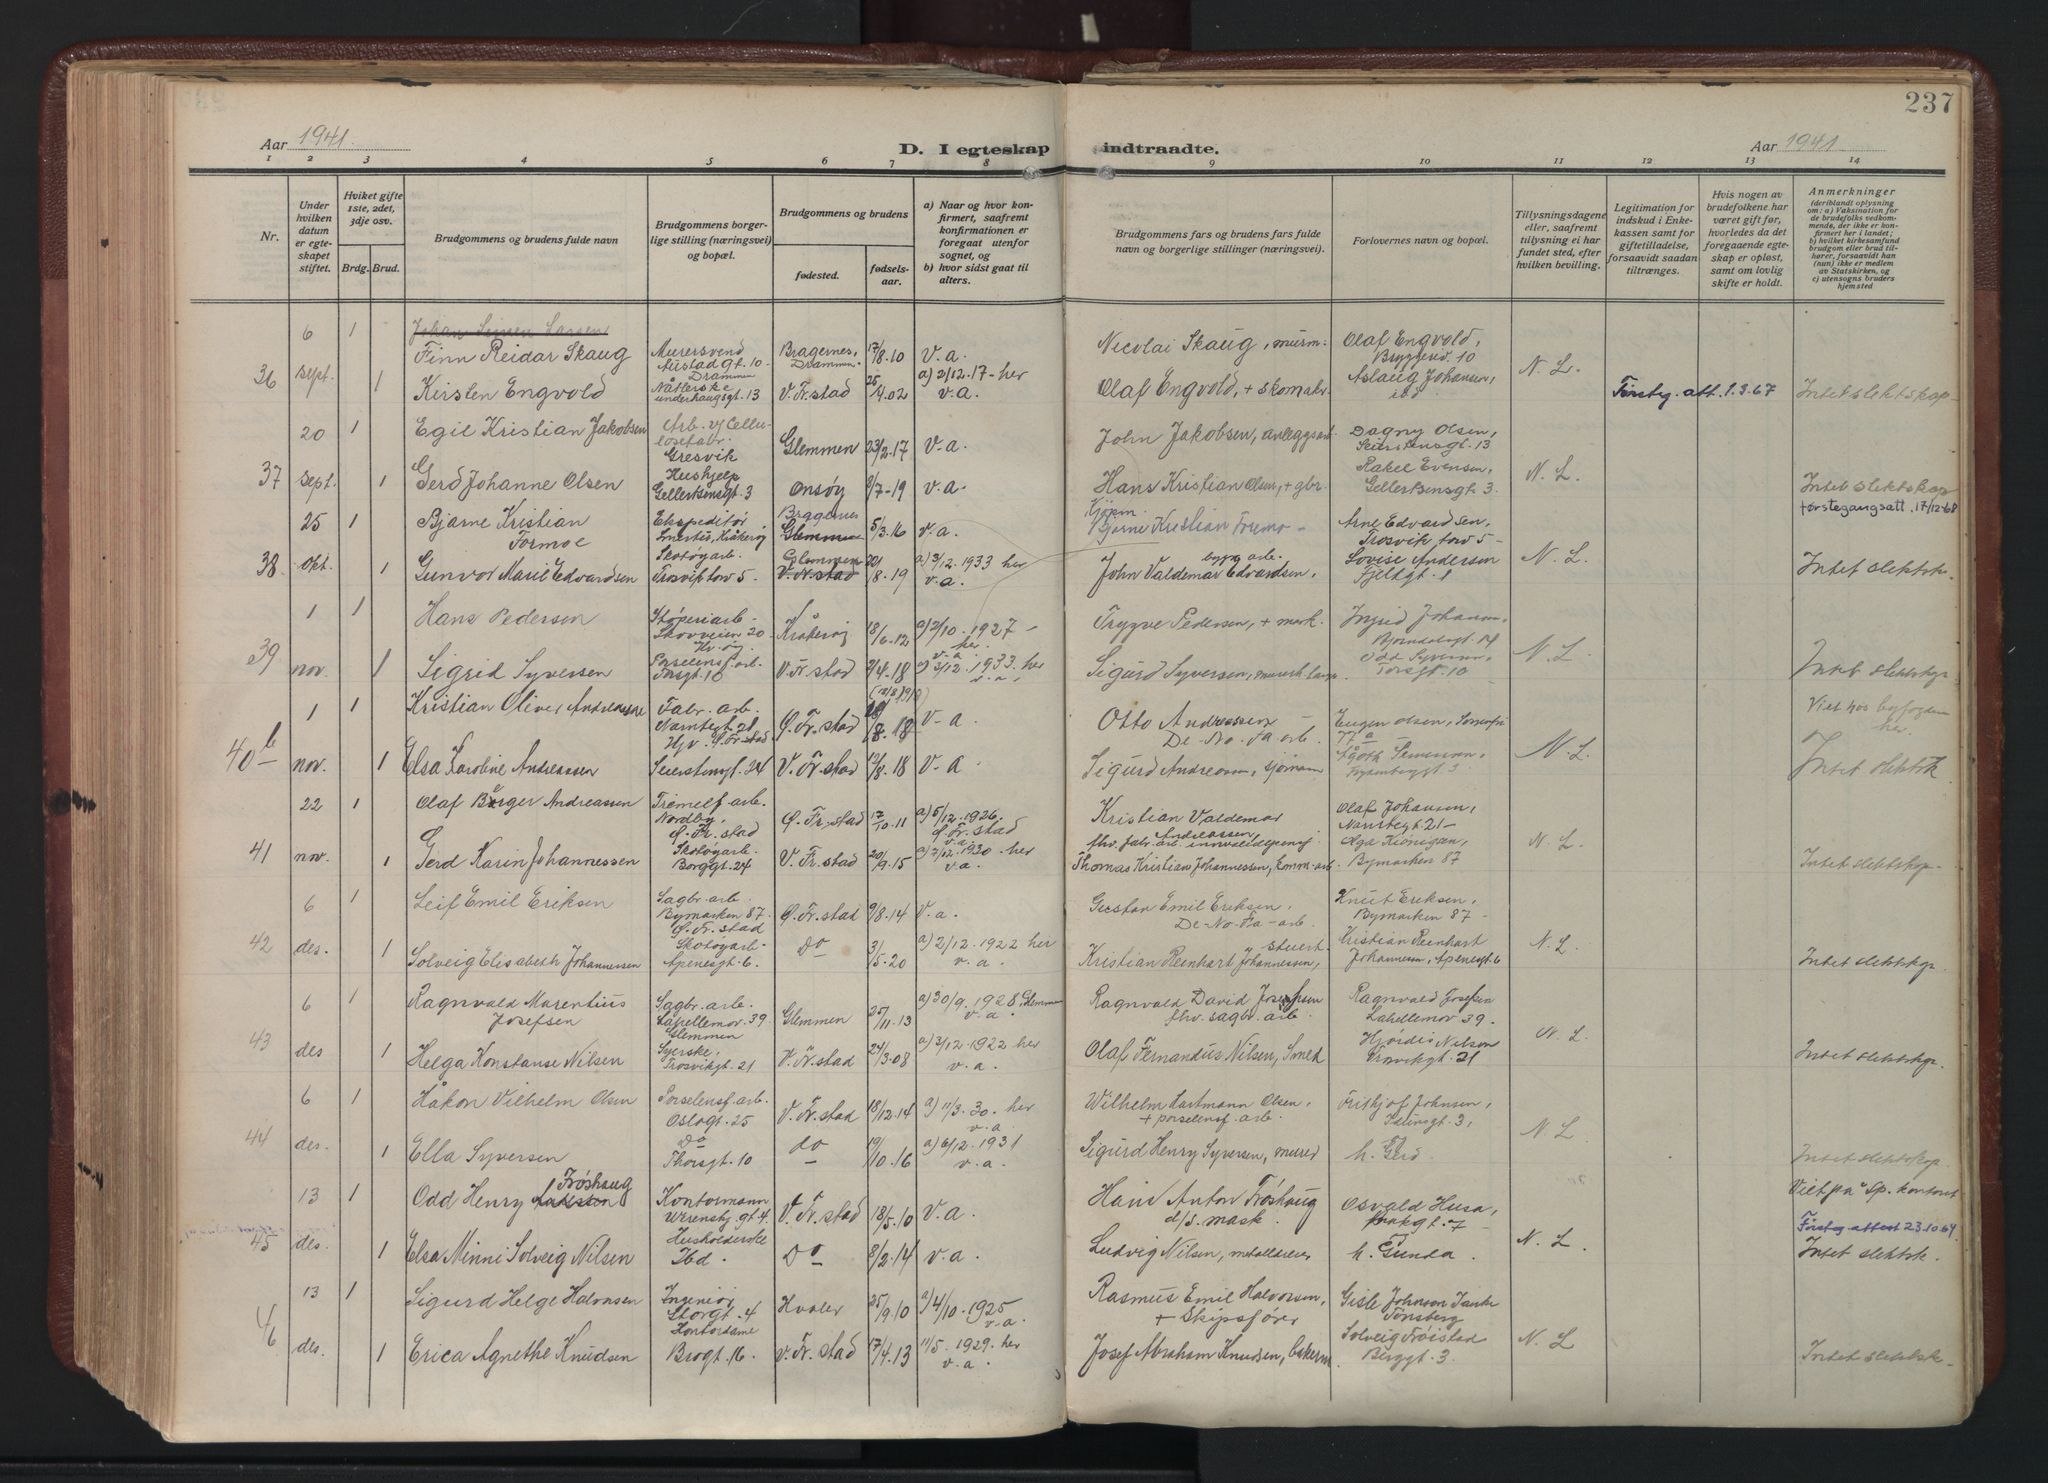 237
Aar 1941.
D. I egteskap indtraadte.
Aar 1941.
1 2 3 4 5 6 7 8 9 10 11 12 13 14
Nr.
Under hvilken datum er egteskapet stiftet.
Hviket gifte 1ste, 2det, 3dje osv.
Brdg. Brud.
Brudgommens og brudens fulde navn
Brudgommens borgerlige stilling (næringsvei) og bopæl.
Brudgommens og brudens
fødested.
fødselsaar.
a) Naar og hvor konfirmert, saafremt konfirmationen er foregaat utenfor sognet, og
b) hvor sidst gaat til alters.
Brudgommens fars og brudens fars fulde navn og borgerlige stillinger (næringsvei).
Forlovernes navn og bopæl.
Tillysningsdagene eller, saafremt tillysning ei har fundet sted, efter hvilken bevilling.
Legitimation for indskud i Enkekassen samt for giftetilladelse, forsaavidt saadan tiltrænges.
Hvis nogen av brudefolkene har været gift før, hvorledes da det foregaaende egteskap er opløst, samt om lovlig skifte er holdt.
Anmerkninger
(deriblandt oplysning om: a) Vaksination for de brudefolks vedkommende, der ikke er konfirmert her i landet; b) hvilket kirkesamfund brudgom eller brud tilhører, forsaavidt han (hun) ikke er medlem av Statskirken, og c) utensogns bruders hjemsted
36 6 sept. 1 Finn Reidar Skaug Murersvend Austadgt. 10 Drammen Bragernes, Drammen 17/8.10 v.a. Nicolai Skaug, murm. Olaf Engvold, Bryggeud. 10 N. L.
1 Kirsten Engvold Nåtlerske underhaugsgt. 13 V. Fr.stad 25/4.02 a) 2/12.17 - her v.a. Olaf Engvold, + skomaker Aslaug Johansen, ibd Førsteg. att. 1.3.67 Intet slektskap.
37 20 sept. 1 Egil Kristian Jakobsen Arb. v/ Cellulosefabr. Gresvik Glemmen 23/2.17 v.a. John Jakobsen, anleggsarb. Dagny Olsen, Seierstensgt. 13 N. L.
1 Gerd Johanne Olsen Hushjelp Gellertsensgt. 3 Onsøy 8/7-19 v.a. Hans Kristian Olsen, + gbr. Rakel Evensen, Gellertsensgt. 3. Intet slektskap førstegangsatt. 17/12-68
38 25 okt. 1 Bjarne Kristian Formoe Ekspeditør Bragernes Glemmen 5/3.16 v.a. Bjarne Kristian Formo - Arne Edvardsen, Trosvik torv 5 - N. L.
1 Gunvor Marie Edvardsen Skotøyarb. Trosvik torv 5. Glemmen V. Fr. stad 20/8.19 a) 3/12.1933 her v.a. John Valdemar Edvardsen, bygg arb. Lovise Andersen Fjeldgt. 1 Intet slektsk.
39 1 nov. 1 Hans Pedersen Støperiarb. Skovveien 20 Kråkerøy 18/6.12 a) 2/10.1927 - her. v.a. Trygve Pedersen, + mark. Ingrid Johansen N. L.
1 Sigrid Syversen Porselensf. arb. Torsgt. 10 V. Fr.stad 2/4.18 a) 3/12.1933 her v.a. Sigurd Syversen, Odd Syversen, Torsgt. 10 Intet slektskap
40 b 1 nov. 1 Kristian Oliver Andreassen Fabr. arb. Nansegt. 21 Hjv. Ø. Fr.stad Ø. Fr. stad 8.18 v-a Otto Andreassen De-No-Fa arb. Eugen Olsen, 77 a N. L. Viet hos byfogden her.
1 Elsa Karoline Andreassen Seierstensgt. 24 V. Fr.stad 12/8.18 v-a Sigurd Andreassen, sjømann Intet slektsk
41 22 nov. 1 Olaf Birger Andreassen Tremelf. arb. Nordby, Ø. Fr. stad Ø. Fr. stad 17/10.11 a) 5/12.1926. Ø. Fr. stad v.a. Kristian Valdemar Andreassen, fhv. fabr. arb. Olaf Johansen, Nansegt. 21 - N. L.
1 Gerd Karin Johannessen Skotøyarb. Borggt. 24 V. Fr. stad 20/9.15 a) 7/12.1930 her v.a. Thomas Kristian Johannessen, komm-arb. Olga Bymarken 87 Intet slektskap.
42 6 des. 1 Leif Emil Eriksen Sagbr. arb. Bymarken 87. Ø. Fr. stad Ø. Fr. stad 9/8.14 v.a. Gustav Emil Eriksen, De-No-Fa-arb. Knut Eriksen, Bymarken 87 - N. L.
1 Solveig Elisabeth Johannessen Skotøyarb. Apenesgt. 6. Do 3/5.20 a) 2/12.1922 her v.a. Kristian Reinhart Johannessen, stuert. Kristian Reinhart Johannessen, Apenesgt 6 Intet slektskap.
43 6 des 1 Ragnvald Marentius Josefsen Sagbr. arb. Lahellemov. 39 Glemmen Glemmen 25/11.13 a) 30/9.1928 Glemmen v.a. Ragnvald David Josefsen fhv. sagbr. arb. Ragnvald Josefsen Lahellemov 39. N. L.
1 Helga Konstanse Nilsen Syerske, Trosvikgt. 21 V. Fr. stad 24/3.08 a) 3/12.1922 her v.a. Olaf Fernandus Nilsen, Smed Hjørdis Nilsen Trosvikgt. 21 Intet slektskap.
44 6 des. 1 Håkon Vilhelm Olsen Porselensf. arb. Oslogt. 25 V. Fr. stad 18/12.14 a) 11/3.30. her v.a. Wilhelm Hartmann Olsen, + porselensf. arb. Frithjof Johnsen, N. L.
1 Ella Syversen Do Thorsgt. 10 do 19/10.16 a) 6/12.1931 v.a. Sigurd Henry Syversen, murer h. Gerd. Intet slektskap.
45 13 des. 1 Odd Henry Frøshaug Kontormann Werenskj. gt. 4. V. Fr. stad 18/5.10 v.a. Hans Anton Frøshaug d/s. mask. Osvald Husa, Parkgt. 7 - N. L. Viet på Sp. kontoret Førsteg. attest 23.10.64.
1 Elsa Minni Solveig Nilsen Husholderske Ibd. Do 8/2.14 v.a. Ludvig Nilsen, h. Gunda. Intet slektsk.
46 13 des. 1 Sigurd Helge Halvorsen Ingeniør Storgt. 4 Hvaler 25/9.10 a) 4/10.1925 v.a. Rasmus Emil Halvorsen, + Skipsfører Gisle Johnson Tanke Tønsberg N. L
1 Erica Agnethe Knudsen Kontordame Brogt. 16. v. Fr. stad 17/4.13 11/5.1929. her v.a. Josef Abraham Knudsen, bakerm. Solveig Frøistad Berggt. 3. Intet slektsk-